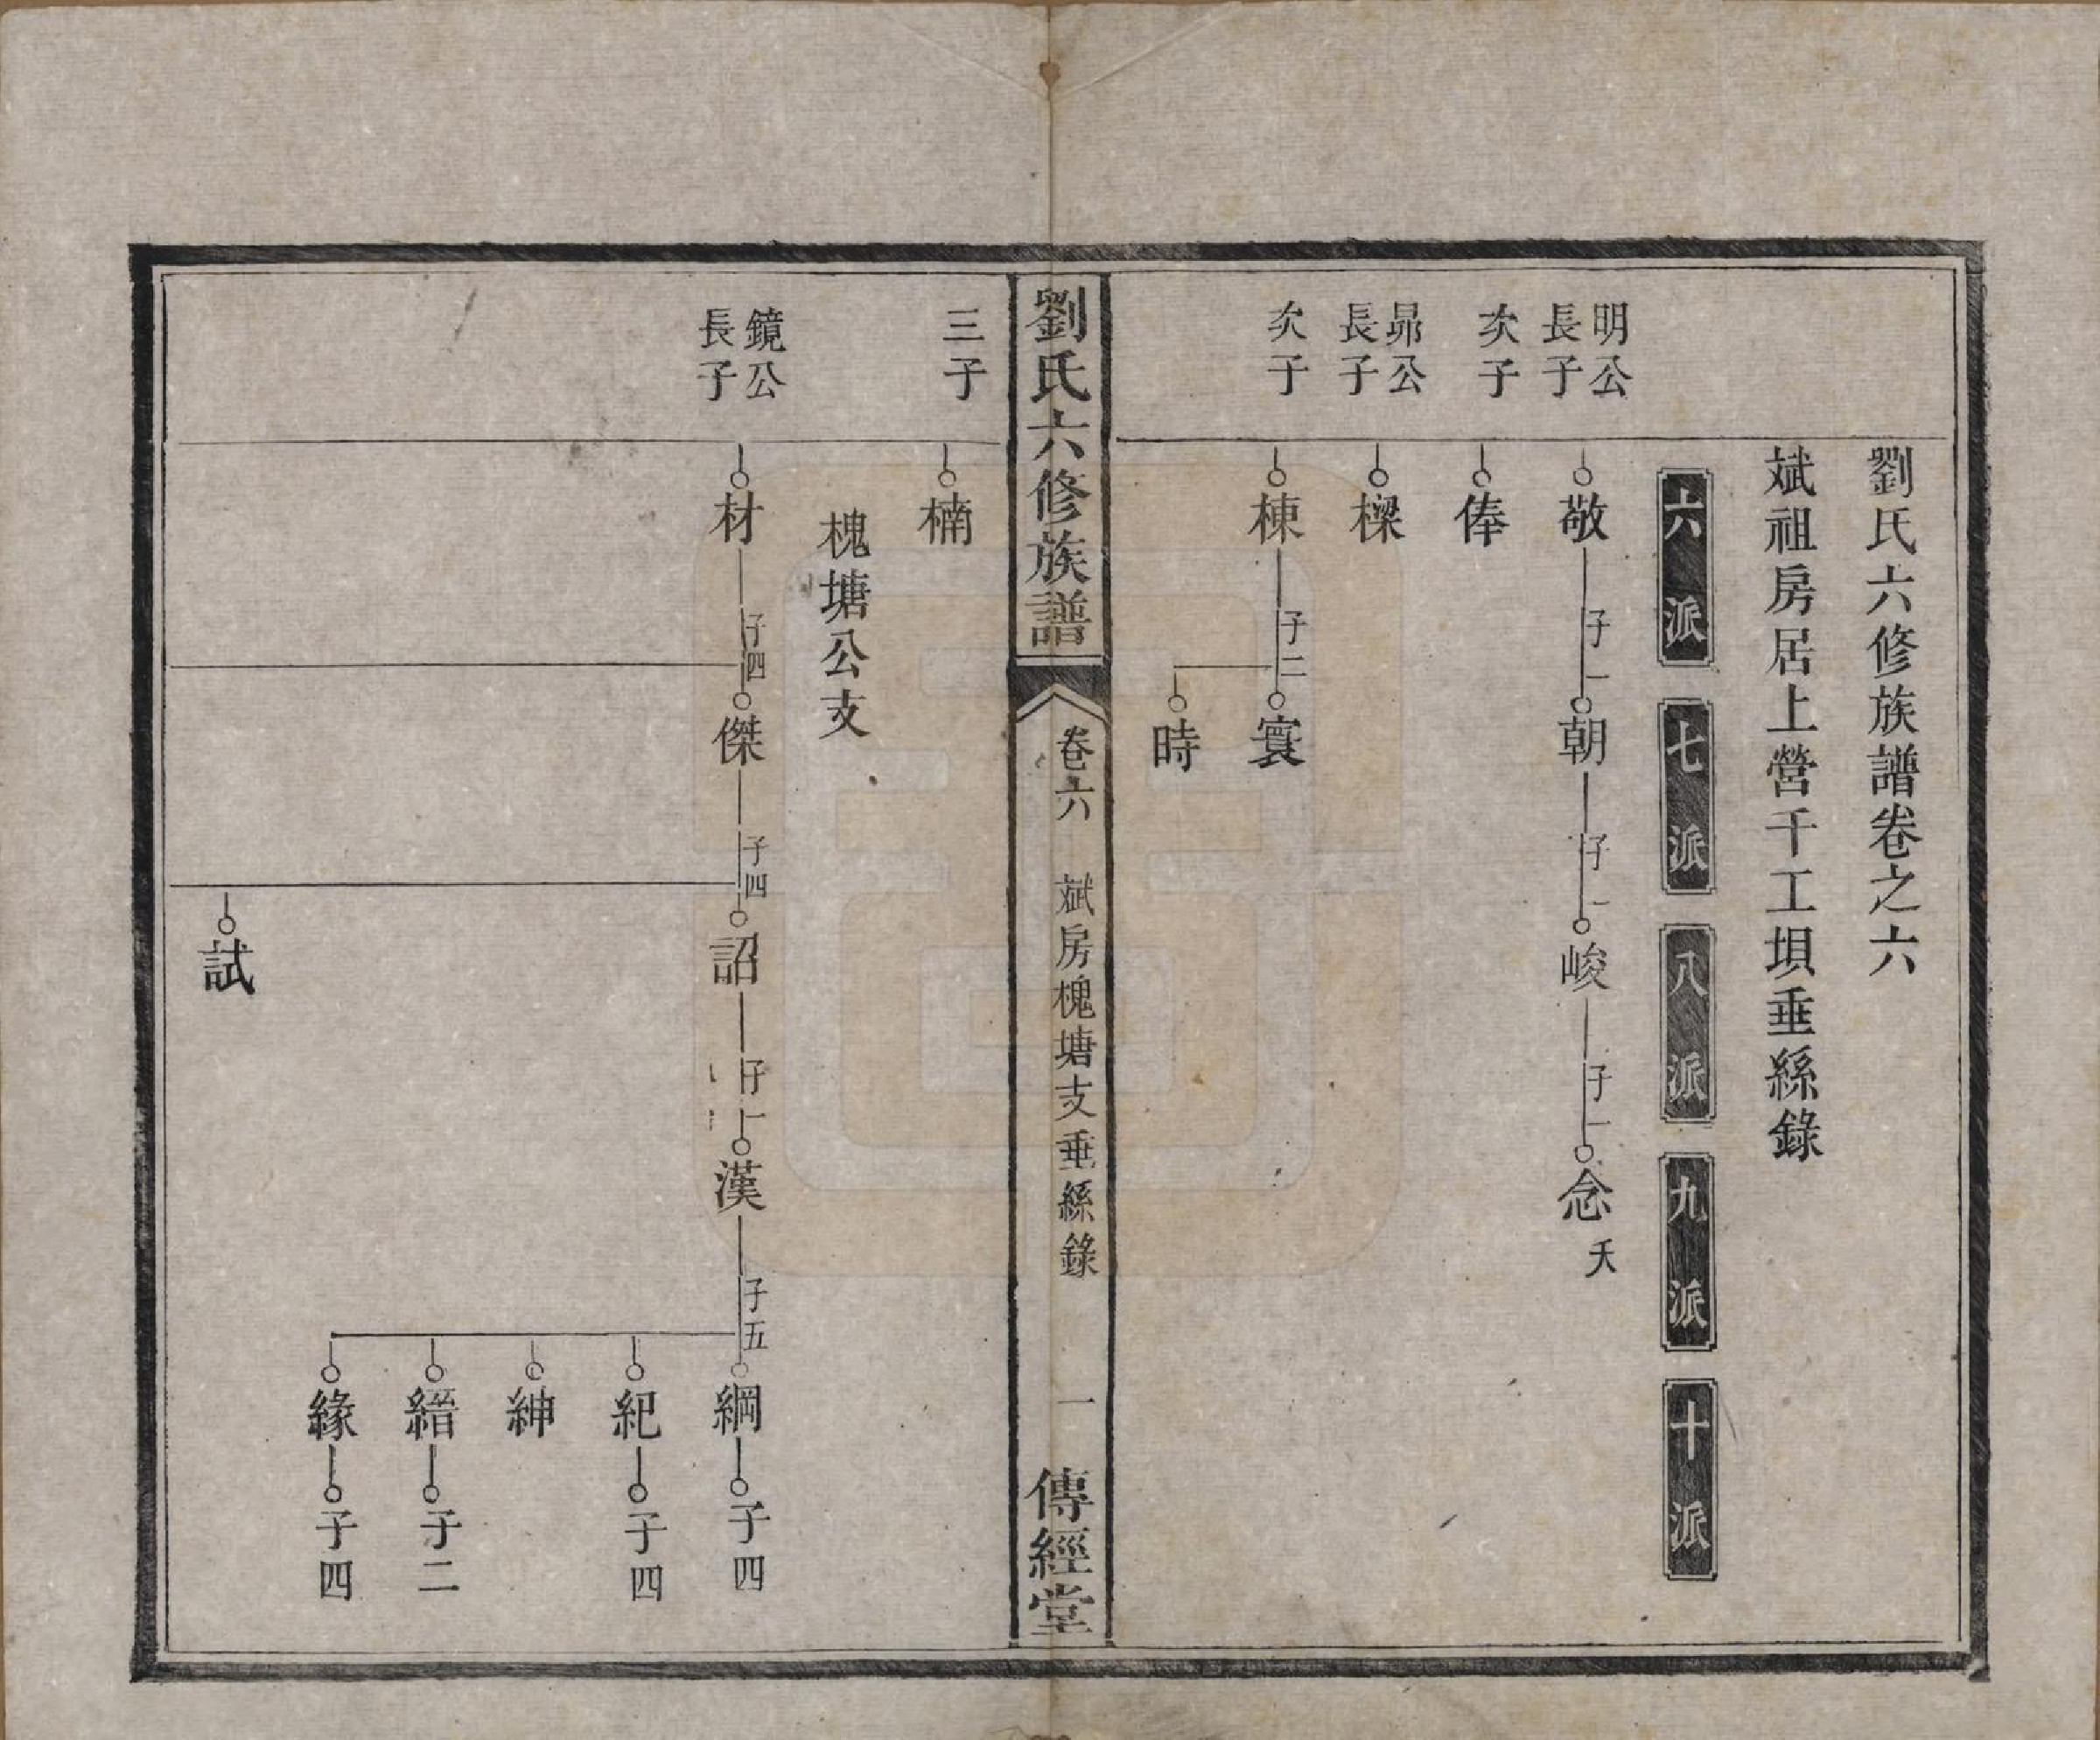 劉氏六修族譜卷之六
斌祖房居上營千工垻垂絲錄
六派
七派
八派
九派
十派
明公
長子
敬
子一
朝
子一
峻
子一
念
夭
次子
俸
昴公
長子
樑
次子
棟
子二
寰
時
劉氏六修族譜
卷六
斌房槐塘支垂絲錄
一
傳經堂
三子
楠
槐塘公支
鏡公
長子
材
子四
傑
子四
詔
子一
漢
子五
綱
子四
紀
子四
紳
縉
子二
緣
子四
試